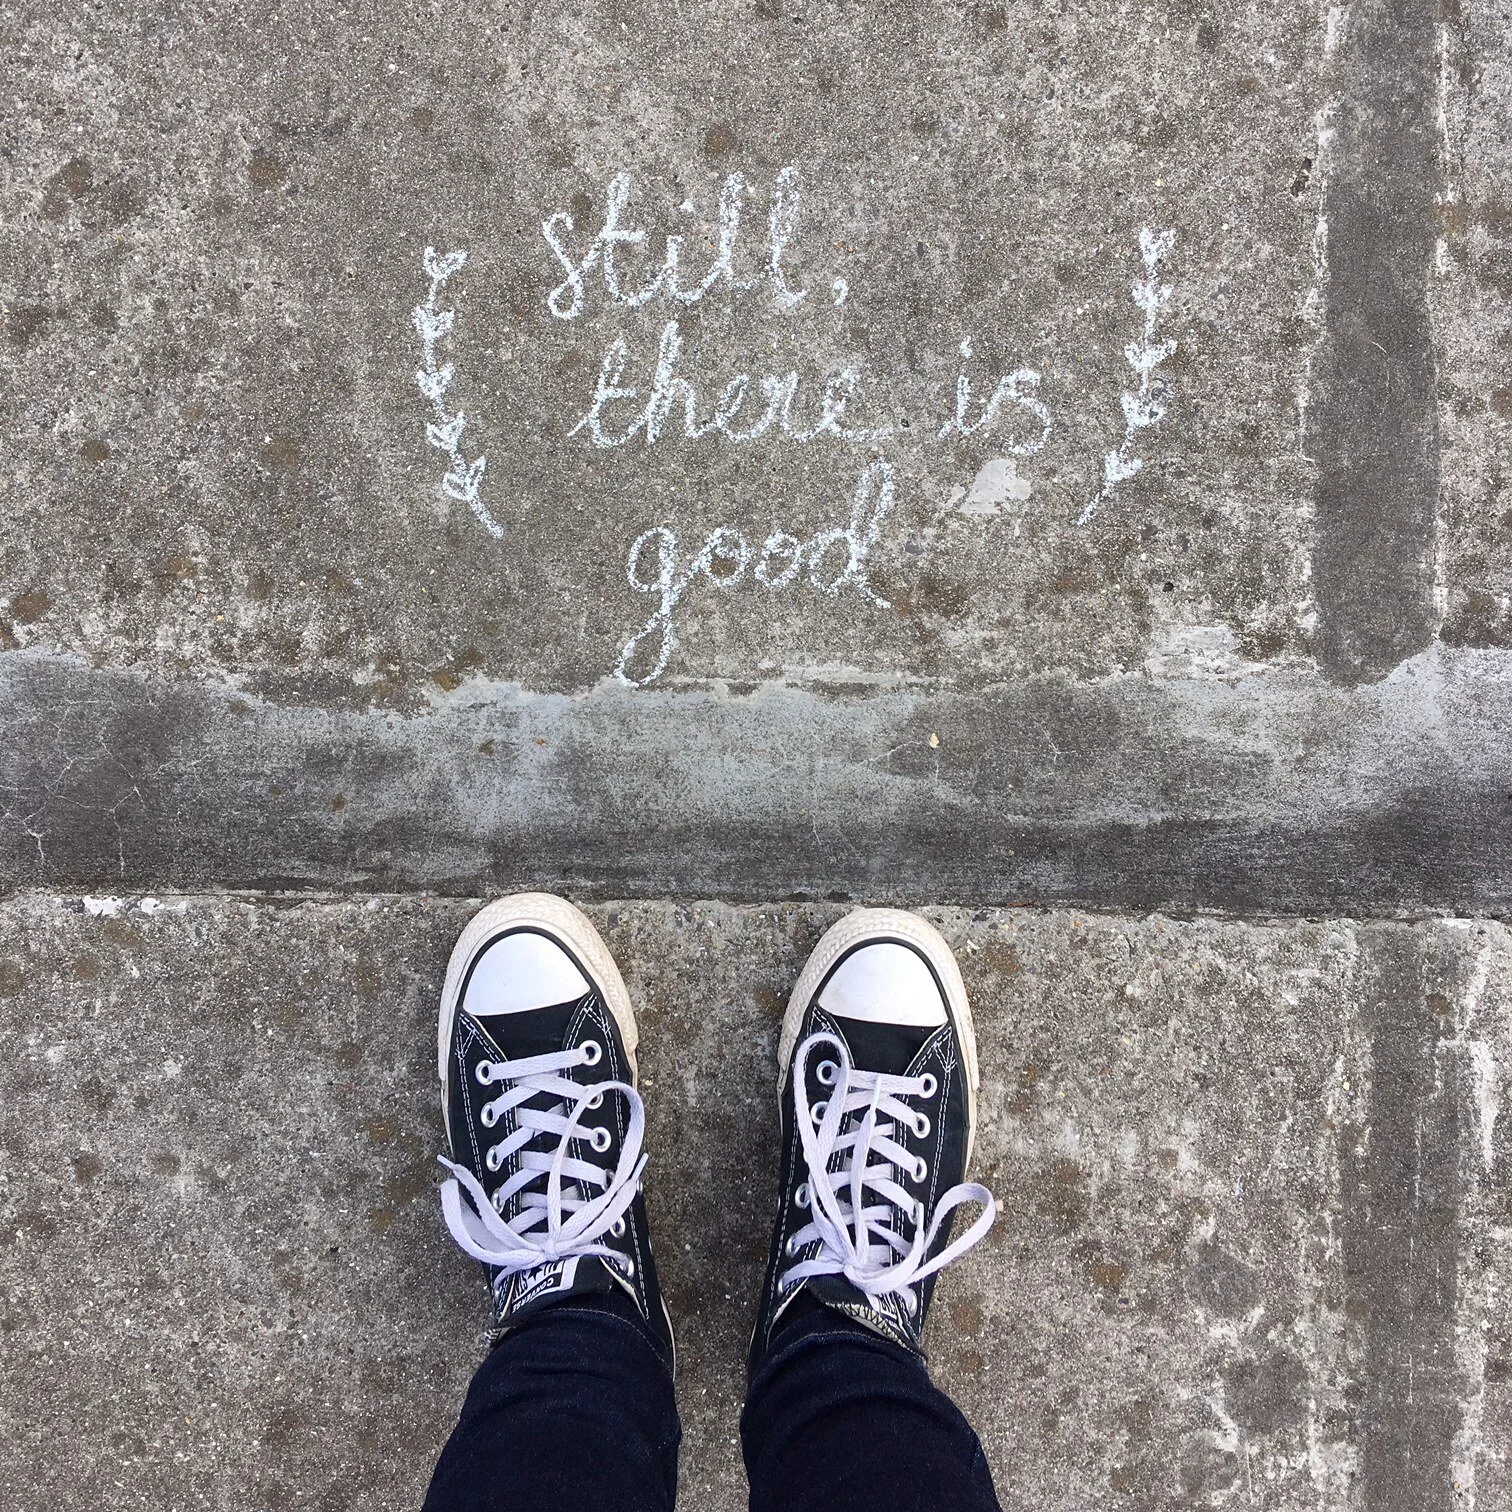 still,
there is
good
CONVERSE